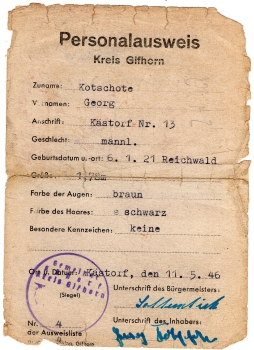 Personalausweis
Kreis Gifhorn
Zuname: Kotschote
Vorname: Georg
Anschrift: Kästorf Nr. 13
Geschlecht männl.
Geburtsdatum u.-ort: 6.1.21 Reichwald
Größe: 1,78m
Farbe der Augen: braun
Farbe des Haares: s schwarz
Besondere Kennzeichen: keine
Ort u. Datum: Kästorf, den 11.5.46
Kreis Gifhorn
(Siegel)
Unterschrift des Bürgermeisters:
Nr. 4
der Ausweisliste
Unterschrift des Inhabers:
Gifhorn